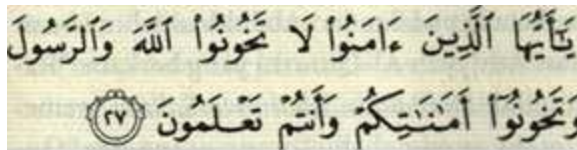 يَـٰٓأَيُّهَا ٱلَّذِينَ ءَامَنُوا۟ لَا تَخُونُوا۟ ٱللَّهَ وَٱلرَّسُولَ
وَتَخُونُوٓا۟ أَمَـٰنَـٰتِكُمْ وَأَنتُمْ تَعْلَمُونَ ٢٧